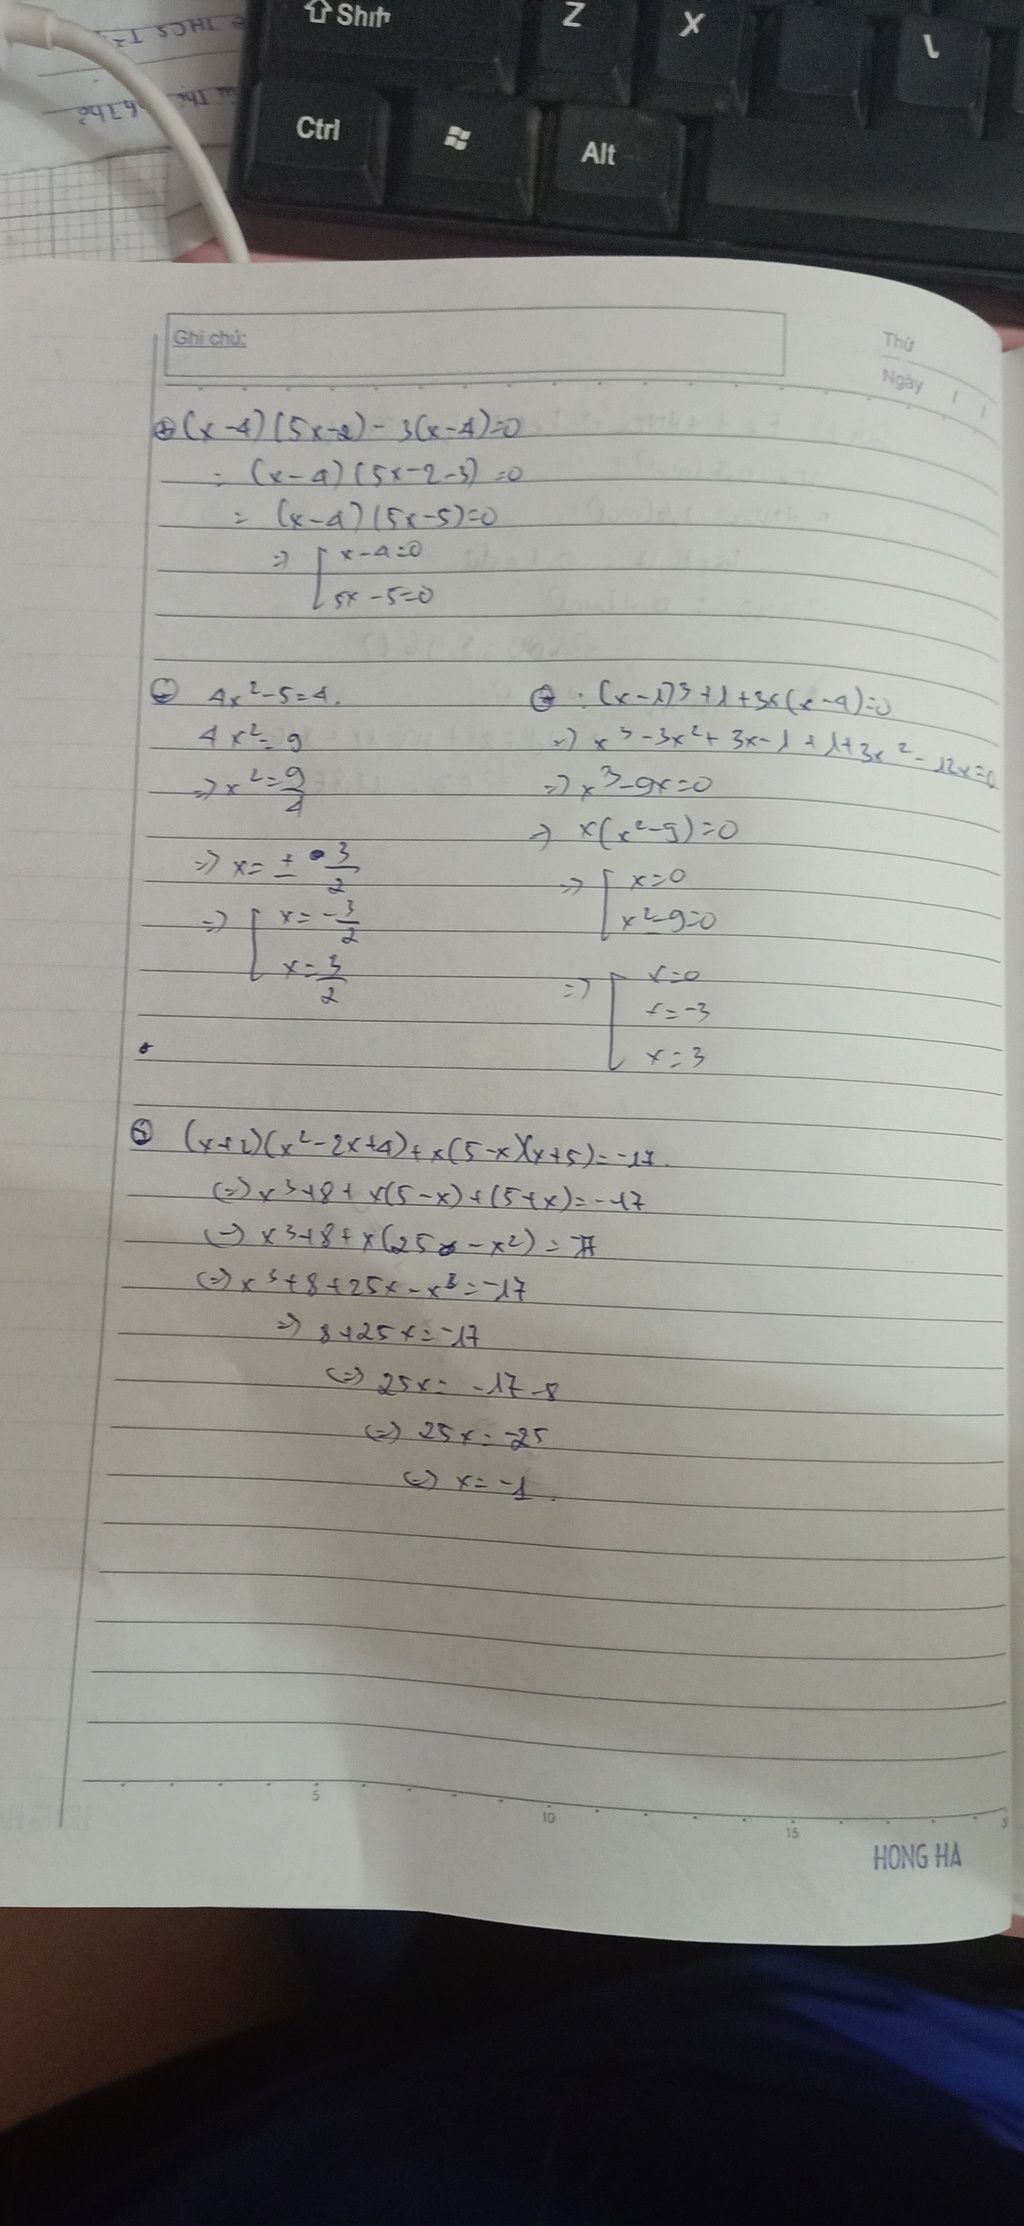 Shift
Z
X
Ctrl
Alt
Ghi chú:
Thứ
Ngày
(x-4)(5x-2)-3(x-4)=0
= (x-4)(5x-2-3)=0
= (x-4)(5x-5)=0
=> [ x-4=0
5x-5=0
4x²-5=4.
4x²=9
=> x²=9/4
=> x= ± 3/2
=> [ x=-3/2
x=3/2
: (x-1)³+1+3x(x-4)=0
=> x³-3x²+3x-1+1+3x²-12x=0
=> x³-9x=0
=> x(x²-9)=0
=> [ x=0
x²-9=0
=> [ x=0
x=-3
x=3
(x+2)(x²-2x+4)+x(5-x)(x+5)=-17.
(=) x³+8+x(5-x)+(5+x)=-17
(=) x³+8+x(25-x²)=-17
(=) x³+8+25x-x³=-17
=> 8+25x=-17
(=) 25x= -17-8
(=) 25x=-25
(=) x=-1.
5
10
15
HONG HA